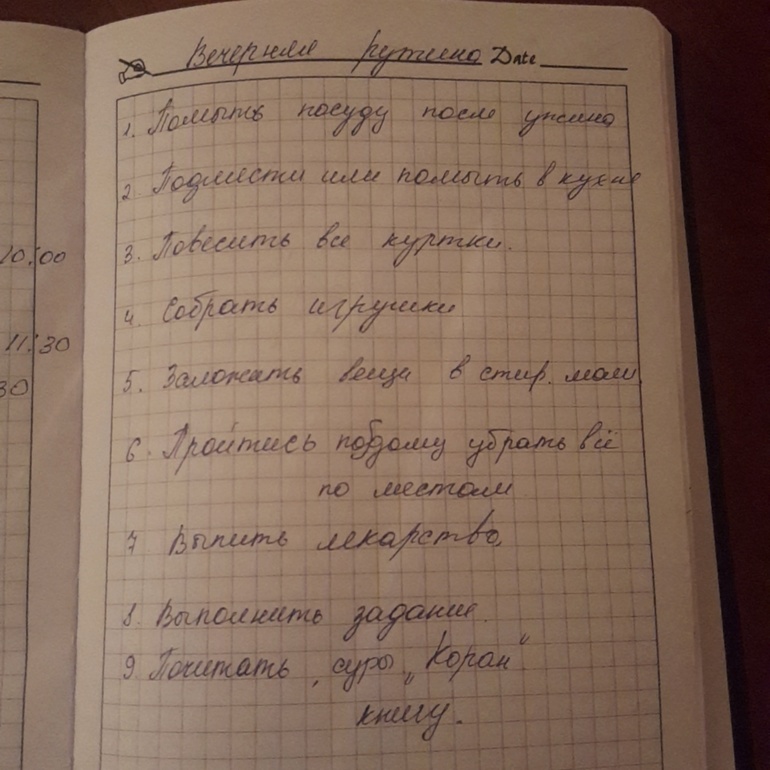 Вечерняя рутина Date
1. Помыть посуду после ужина
2 Подмести или помыть в кухне
10:00
3. Повесить все куртки.
4. Собрать игрушки
11:30
5. Заложить вещи в стир. маш
30
6. Пройтись по дому убрать всё
по местам
7 Выпить лекарство,
8. Выполнить задание.
9. Почитать, суры „Коран"
книгу.